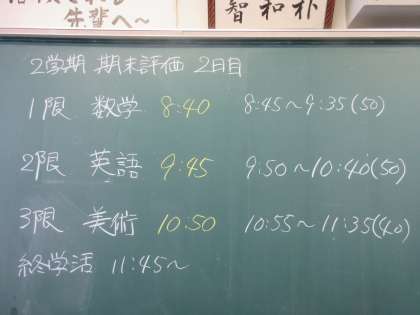 先輩へ～
智和朴
2学期 期末評価 2日目
1限 数学 8:40 8:45～9:35(50)
2限 英語 9:45 9:50～10:40(50)
3限 美術 10:50 10:55～11:35(40)
終学活 11:45～